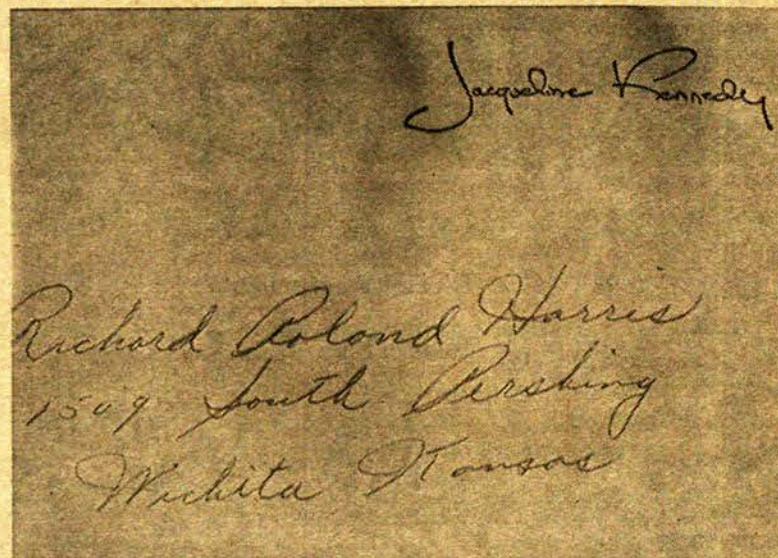 Jacqueline Kennedy
Richard Roland Harris
1509 South Pershing
Wichita Kansas